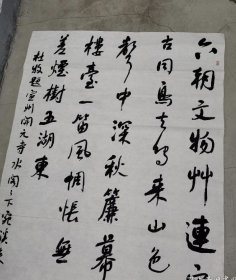 六朝文物艸連
古同鳥去鳥來山色
聲中深秋簾幕
樓臺一笛風惆悵無
差煙樹五湖東
杜牧題宣州開元寺水閣々下宛溪